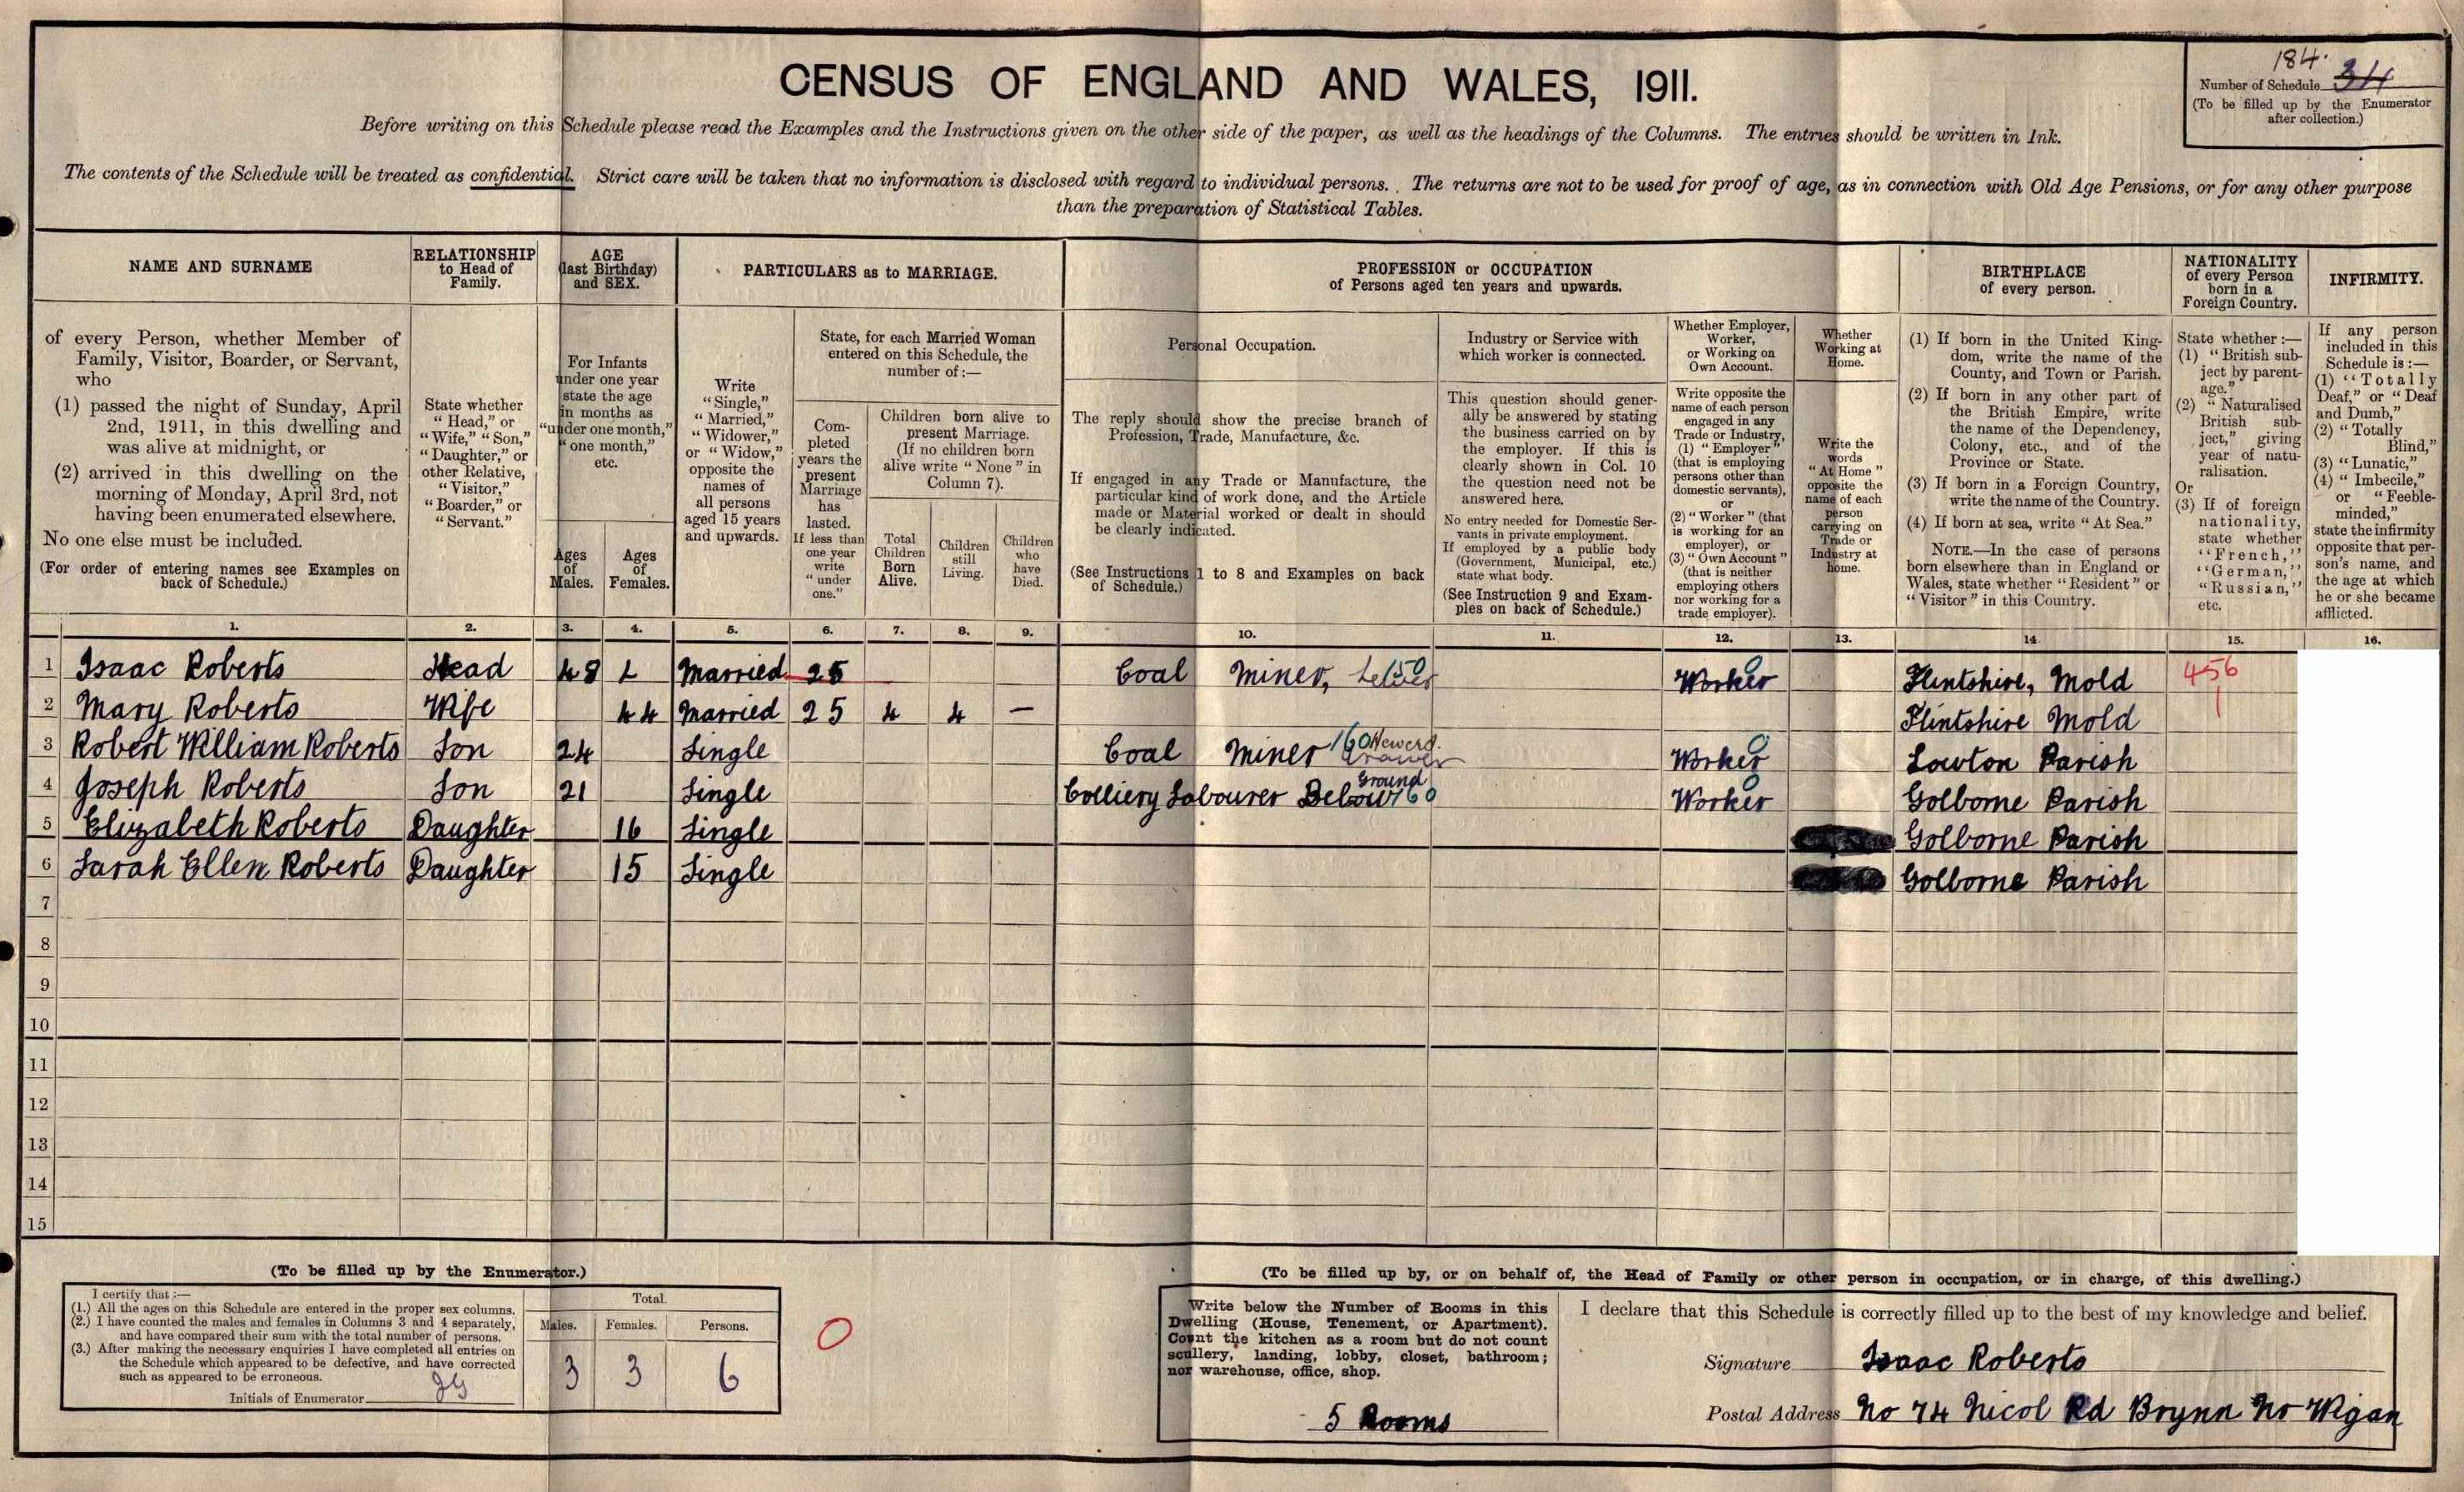 CENSUS OF ENGLAND AND WALES, 1911.
184.
Number of Schedule 34
(To be filled up by the Enumerator
after collection.)
Before writing on this Schedule please read the Examples and the Instructions given on the other side of the paper, as well as the headings of the Columns. The entries should be written in Ink.
The contents of the Schedule will be treated as confidential. Strict care will be taken that no information is disclosed with regard to individual persons. The returns are not to be used for proof of age, as in connection with Old Age Pensions, or for any other purpose
than the preparation of Statistical Tables.
NAME AND SURNAME
of every Person, whether Member of
Family, Visitor, Boarder, or Servant,
who
(1) passed the night of Sunday, April
2nd, 1911, in this dwelling and
was alive at midnight, or
(2) arrived in this dwelling on the
morning of Monday, April 3rd, not
having been enumerated elsewhere.
No one else must be included.
(For order of entering names see Examples on
back of Schedule.)
RELATIONSHIP
to Head of
Family.
State whether
"Head," or
"Wife," "Son,"
"Daughter," or
other Relative,
"Visitor,"
"Boarder," or
"Servant."
AGE
(last Birthday)
and SEX.
For Infants
under one year
state the age
in months as
"under one month,"
"one month,"
etc.
Ages
of
Males.
Ages
of
Females.
PARTICULARS as to MARRIAGE.
Write
"Single,"
"Married,"
"Widower,"
or "Widow,"
opposite the
names of
all persons
aged 15 years
and upwards.
State, for each Married Woman
entered on this Schedule, the
number of:—
Com-
pleted
years the
present
Marriage
has
lasted.
If less than
one year
write
"under
one."
Children born alive to
present Marriage.
(If no children born
alive write "None" in
Column 7).
Total
Children
Born
Alive.
Children
still
Living.
Children
who
have
Died.
PROFESSION or OCCUPATION
of Persons aged ten years and upwards.
Personal Occupation.
The reply should show the precise branch of
Profession, Trade, Manufacture, &c.
If engaged in any Trade or Manufacture, the
particular kind of work done, and the Article
made or Material worked or dealt in should
be clearly indicated.
(See Instructions 1 to 8 and Examples on back
of Schedule.)
Industry or Service with
which worker is connected.
This question should gener-
ally be answered by stating
the business carried on by
the employer. If this is
clearly shown in Col. 10
the question need not be
answered here.
No entry needed for Domestic Ser-
vants in private employment.
If employed by a public body
(Government, Municipal, etc.)
state what body.
(See Instruction 9 and Exam-
ples on back of Schedule.)
Whether Employer,
Worker,
or Working on
Own Account.
Write opposite the
name of each person
engaged in any
Trade or Industry,
(1) "Employer"
(that is employing
persons other than
domestic servants),
or
(2) "Worker" (that
is working for an
employer), or
(3) "Own Account"
(that is neither
employing others
nor working for a
trade employer).
Whether
Working at
Home.
Write the
words
"At Home"
opposite the
name of each
person
carrying on
Trade or
Industry at
home.
BIRTHPLACE
of every person.
(1) If born in the United King-
dom, write the name of the
County, and Town or Parish.
(2) If born in any other part of
the British Empire, write
the name of the Dependency,
Colony, etc., and of the
Province or State.
(3) If born in a Foreign Country,
write the name of the Country.
(4) If born at sea, write "At Sea."
NOTE.—In the case of persons
born elsewhere than in England or
Wales, state whether "Resident" or
"Visitor" in this Country.
NATIONALITY
of every Person
born in a
Foreign Country.
State whether:—
(1) "British sub-
ject by parent-
age."
(2) "Naturalised
British sub-
ject," giving
year of natu-
ralisation.
Or
(3) If of foreign
nationality,
state whether
"French,"
"German,"
"Russian,"
etc.
INFIRMITY.
If any person
included in this
Schedule is:—
(1) "Totally
Deaf," or "Deaf
and Dumb,"
(2) "Totally
Blind,"
(3) "Lunatic,"
(4) "Imbecile,"
or "Feeble-
minded,"
state the infirmity
opposite that per-
son's name, and
the age at which
he or she became
afflicted.
1. 2. 3. 4. 5. 6. 7. 8. 9. 10. 11. 12. 13. 14. 15. 16.
1 Isaac Roberts Head 48 Married 25 Coal Miner, 150 Worker 0 Flintshire, Mold 456
2 Mary Roberts Wife 44 Married 25 4 4 — Flintshire Mold 1
3 Robert William Roberts Son 24 Single Coal Miner 160 Hewer Worker 0 Lowton Parish
4 Joseph Roberts Son 21 Single Colliery Labourer Below Ground 160 Worker 0 Golborne Parish
5 Elizabeth Roberts Daughter 16 Single Golborne Parish
6 Sarah Ellen Roberts Daughter 15 Single Golborne Parish
7
8
9
10
11
12
13
14
15
(To be filled up by the Enumerator.)
I certify that:—
(1.) All the ages on this Schedule are entered in the proper sex columns.
(2.) I have counted the males and females in Columns 3 and 4 separately,
and have compared their sum with the total number of persons.
(3.) After making the necessary enquiries I have completed all entries on
the Schedule which appeared to be defective, and have corrected
such as appeared to be erroneous.
Initials of Enumerator
Total.
Males. Females. Persons.
3 3 6
0
(To be filled up by, or on behalf of, the Head of Family or other person in occupation, or in charge, of this dwelling.)
Write below the Number of Rooms in this
Dwelling (House, Tenement, or Apartment).
Count the kitchen as a room but do not count
scullery, landing, lobby, closet, bathroom;
nor warehouse, office, shop.
5 Rooms
I declare that this Schedule is correctly filled up to the best of my knowledge and belief.
Signature Isaac Roberts
Postal Address No 74 Nicol Rd Brynn Nr Wigan